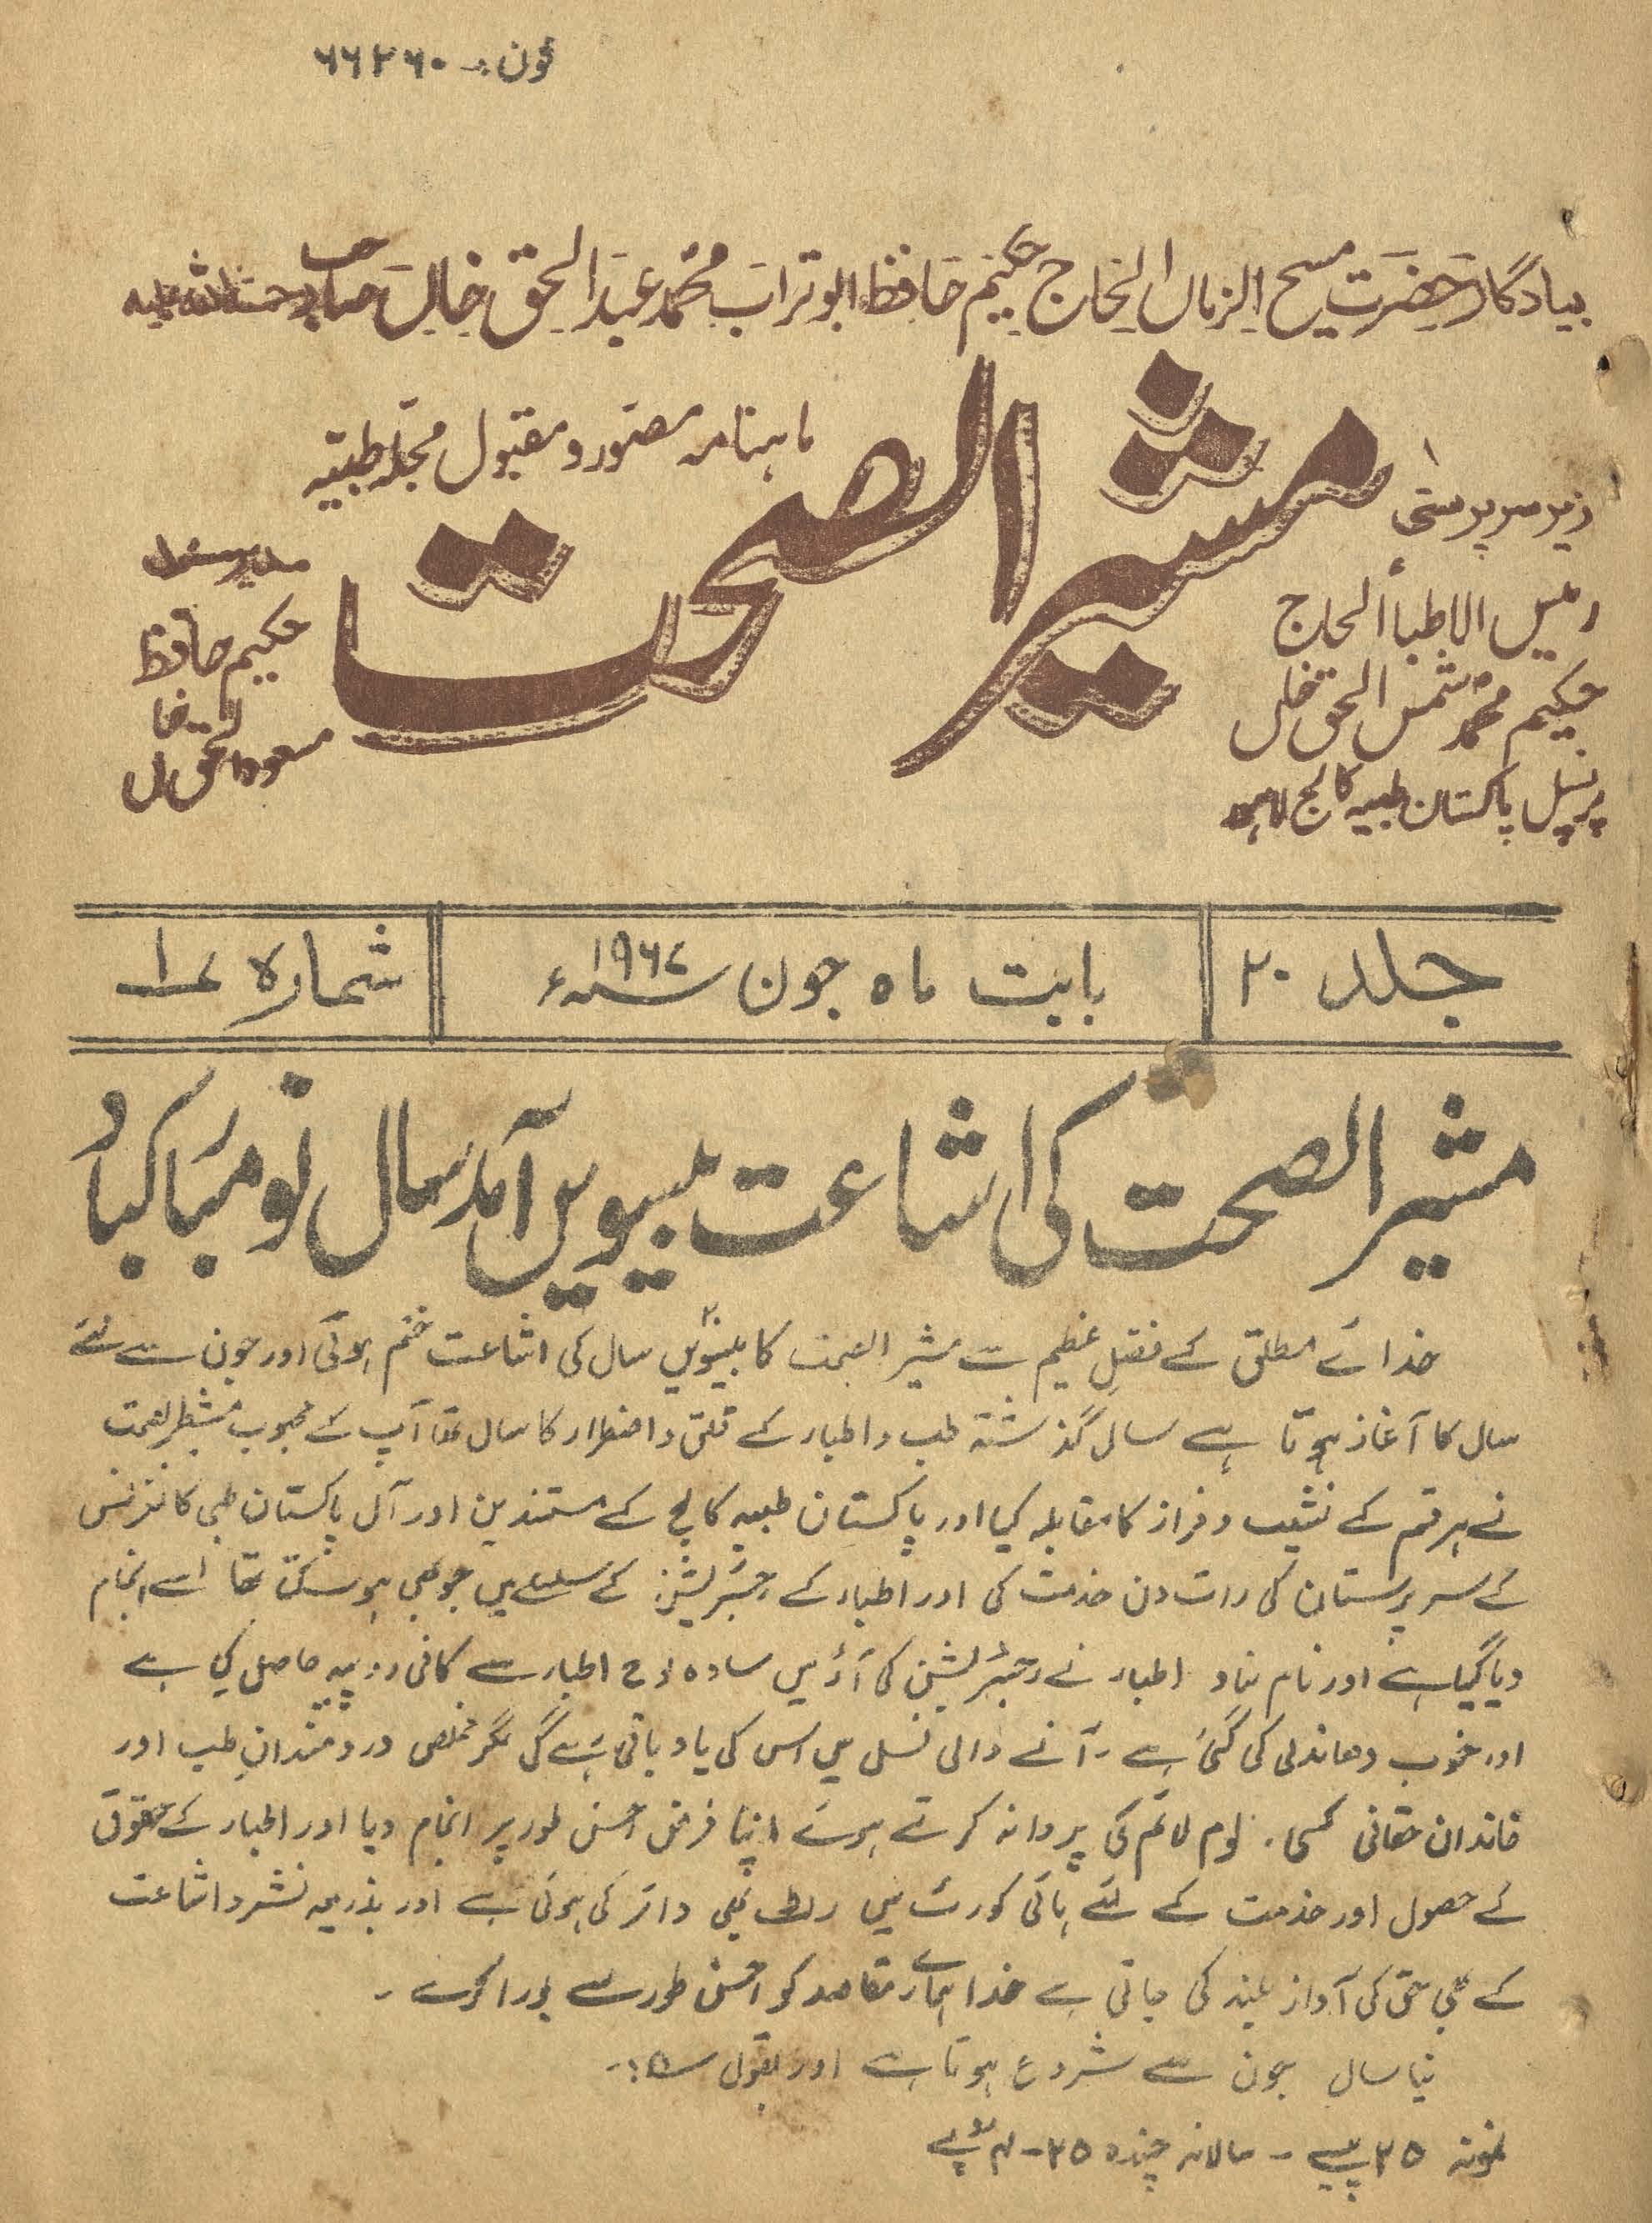 فون:۔ ۶۶۲۶۰
بیادگار حضرت مسیح الزماں الحاج حکیم حافظ ابو تراب محمد عبد الحق خاں صاحب رحمتہ اللہ علیہ
ماہنامہ مصور و مقبول مجلہ طبیہ
مشیر الصحت
زیر سرپرستی
رئیس الاطباء الحاج
حکیم محمد شمس الحق خاں
پرنسپل پاکستان طبیہ کالج لاہور
مدیر مسئول
حکیم حافظ
مسعود الحق خاں
جلد ۲۰
بابت ماہ جون ۱۹۶۷ء
شمارہ ۱
مشیر الصحت کی اشاعت بیسیویں آمد سال نو مبارکباد
خدائے مطلق کے فضلِ عظیم سے مشیر الصحت کا بیسیویں سال کی اشاعت ختم ہوگی اور جون سے نئے
سال کا آغاز ہوتا ہے سال گذشتہ طب و اطباء کے قلق و اضطرار کا سال تھا آپ کے محبوب مشیر الصحت
نے ہر قسم کے نشیب و فراز کا مقابلہ کیا اور پاکستان طبیہ کالج کے مستندین اور آل پاکستان طبی کانفرنس
کے سرپرستان کی رات دن خدمت کی اور اطباء کے رجسٹریشن کے سلسلے میں جو بھی ہو سکتا تھا اسے انجام
دیا گیا ہے اور نام نہاد اطباء نے رجسٹریشن کی آڑ میں سادہ لوح اطباء سے کافی روپیہ حاصل کی ہے
اور خوب دھاندلی کی گئی ہے ۔ آنے والی نسل میں اس کی یاد باقی رہے گی مگر مخلص دردمندانِ طب اور
خاندان حقانی کسی لوم لائم کی پروا نہ کرتے ہوئے اپنا فرض احسن طور پر انجام دیا اور اطباء کے حقوق
کے حصول اور خدمت کے لئے ہائی کورٹ میں رٹ بھی دائر کی ہوئی ہے اور بذریعہ نشر و اشاعت
کے بھی حق کی آواز بلند کی جاتی ہے خدا ہمارے مقاصد کو احسن طور سے پورا کرے ۔
نیا سال جون سے شروع ہوتا ہے اور بقول
نمونہ ۲۵ پیسے ۔ سالانہ چندہ ۲۵ - ۴ روپے